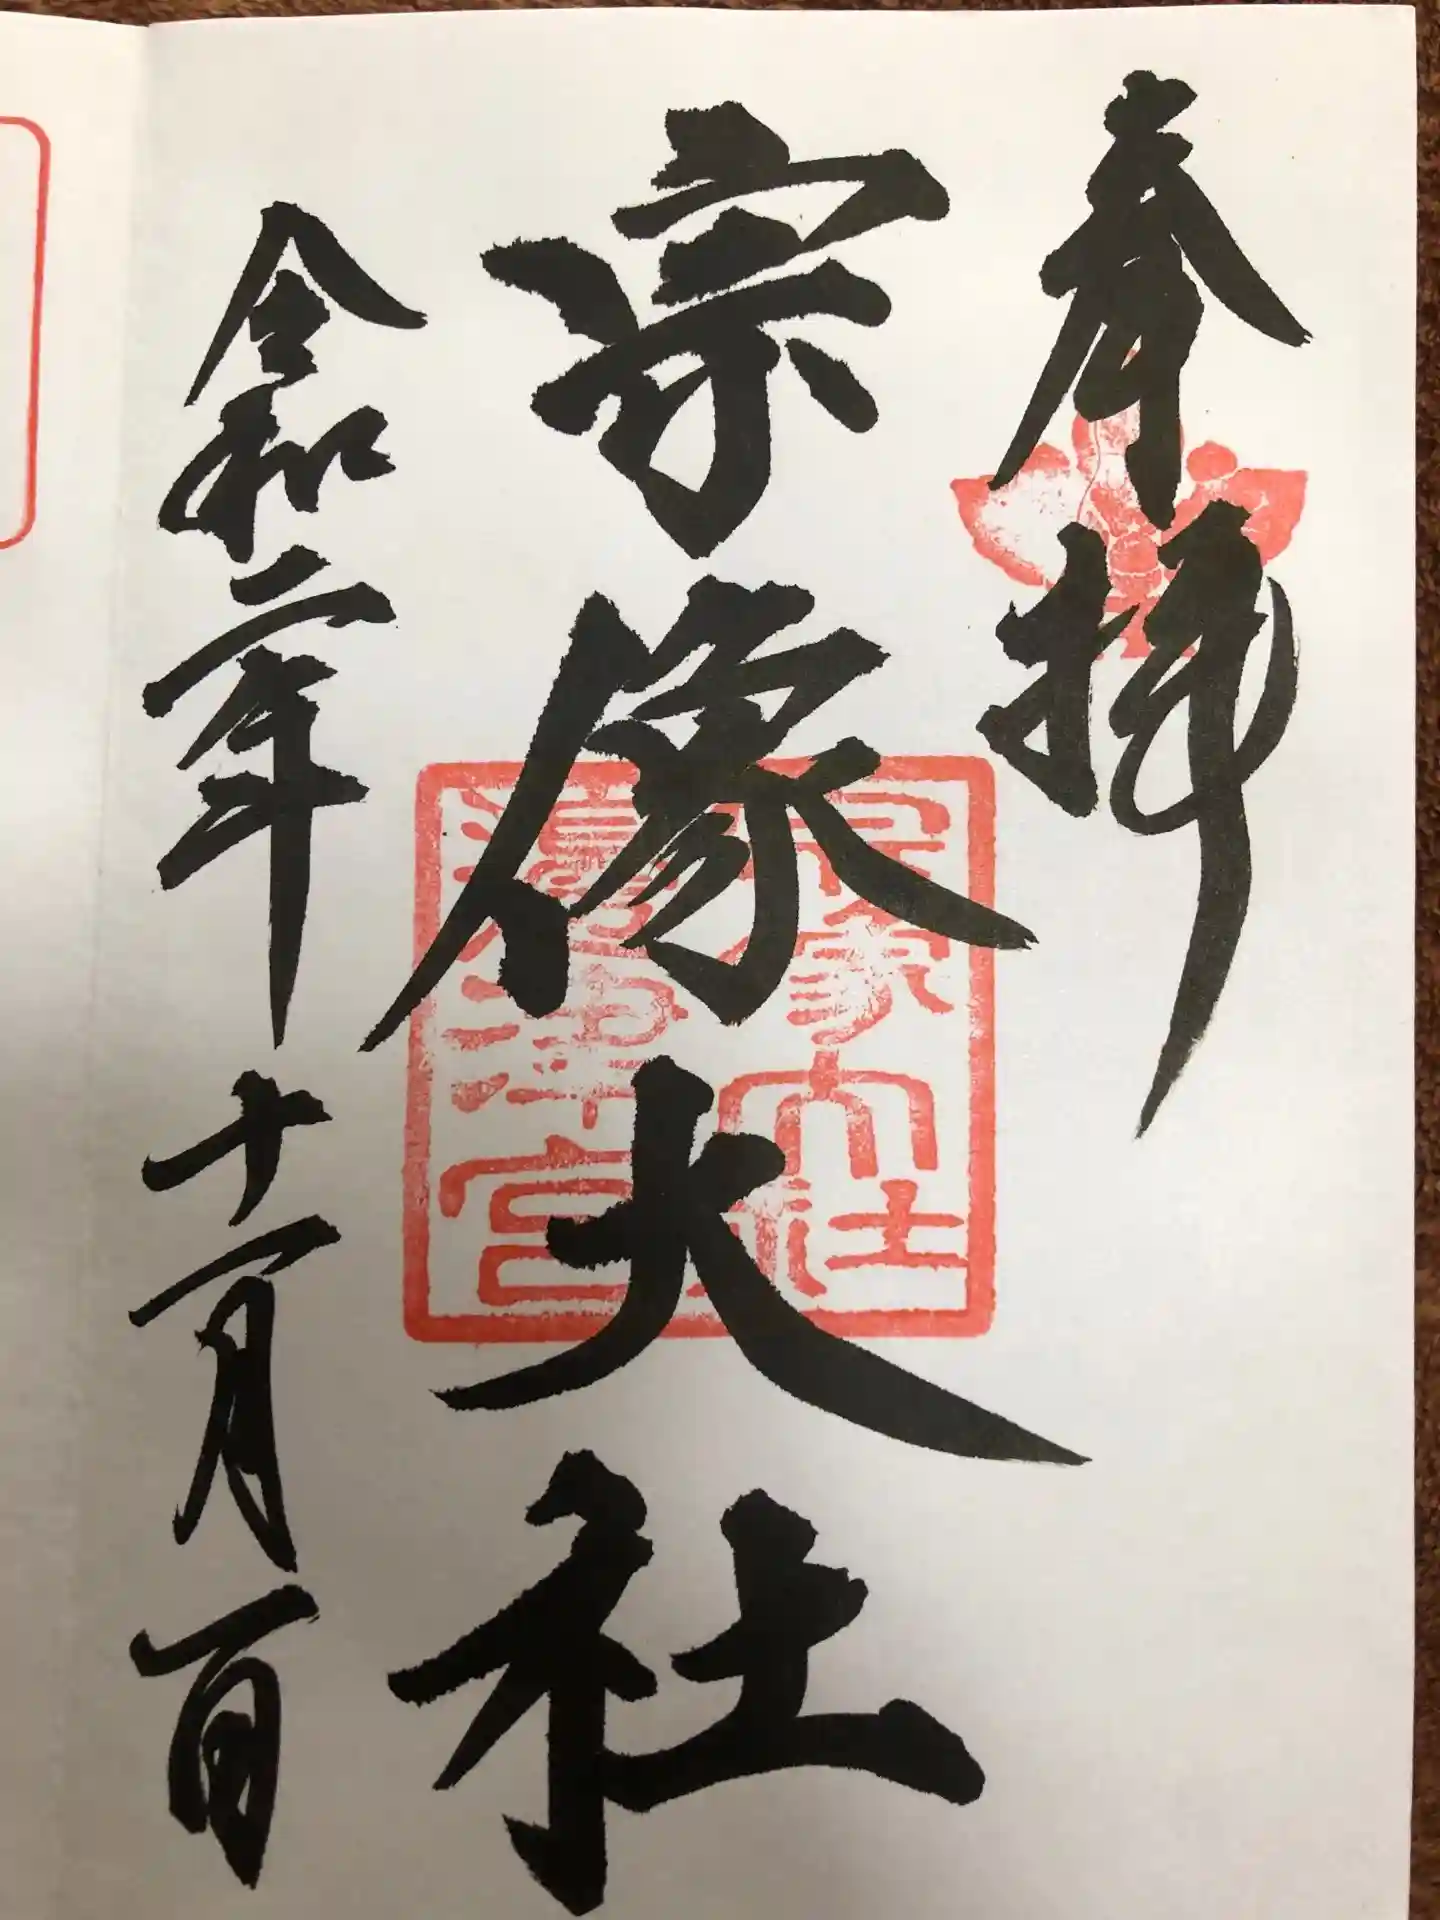 奉拝
宗像大社
令和二年十一月一日
宗像大社
瀛津宮